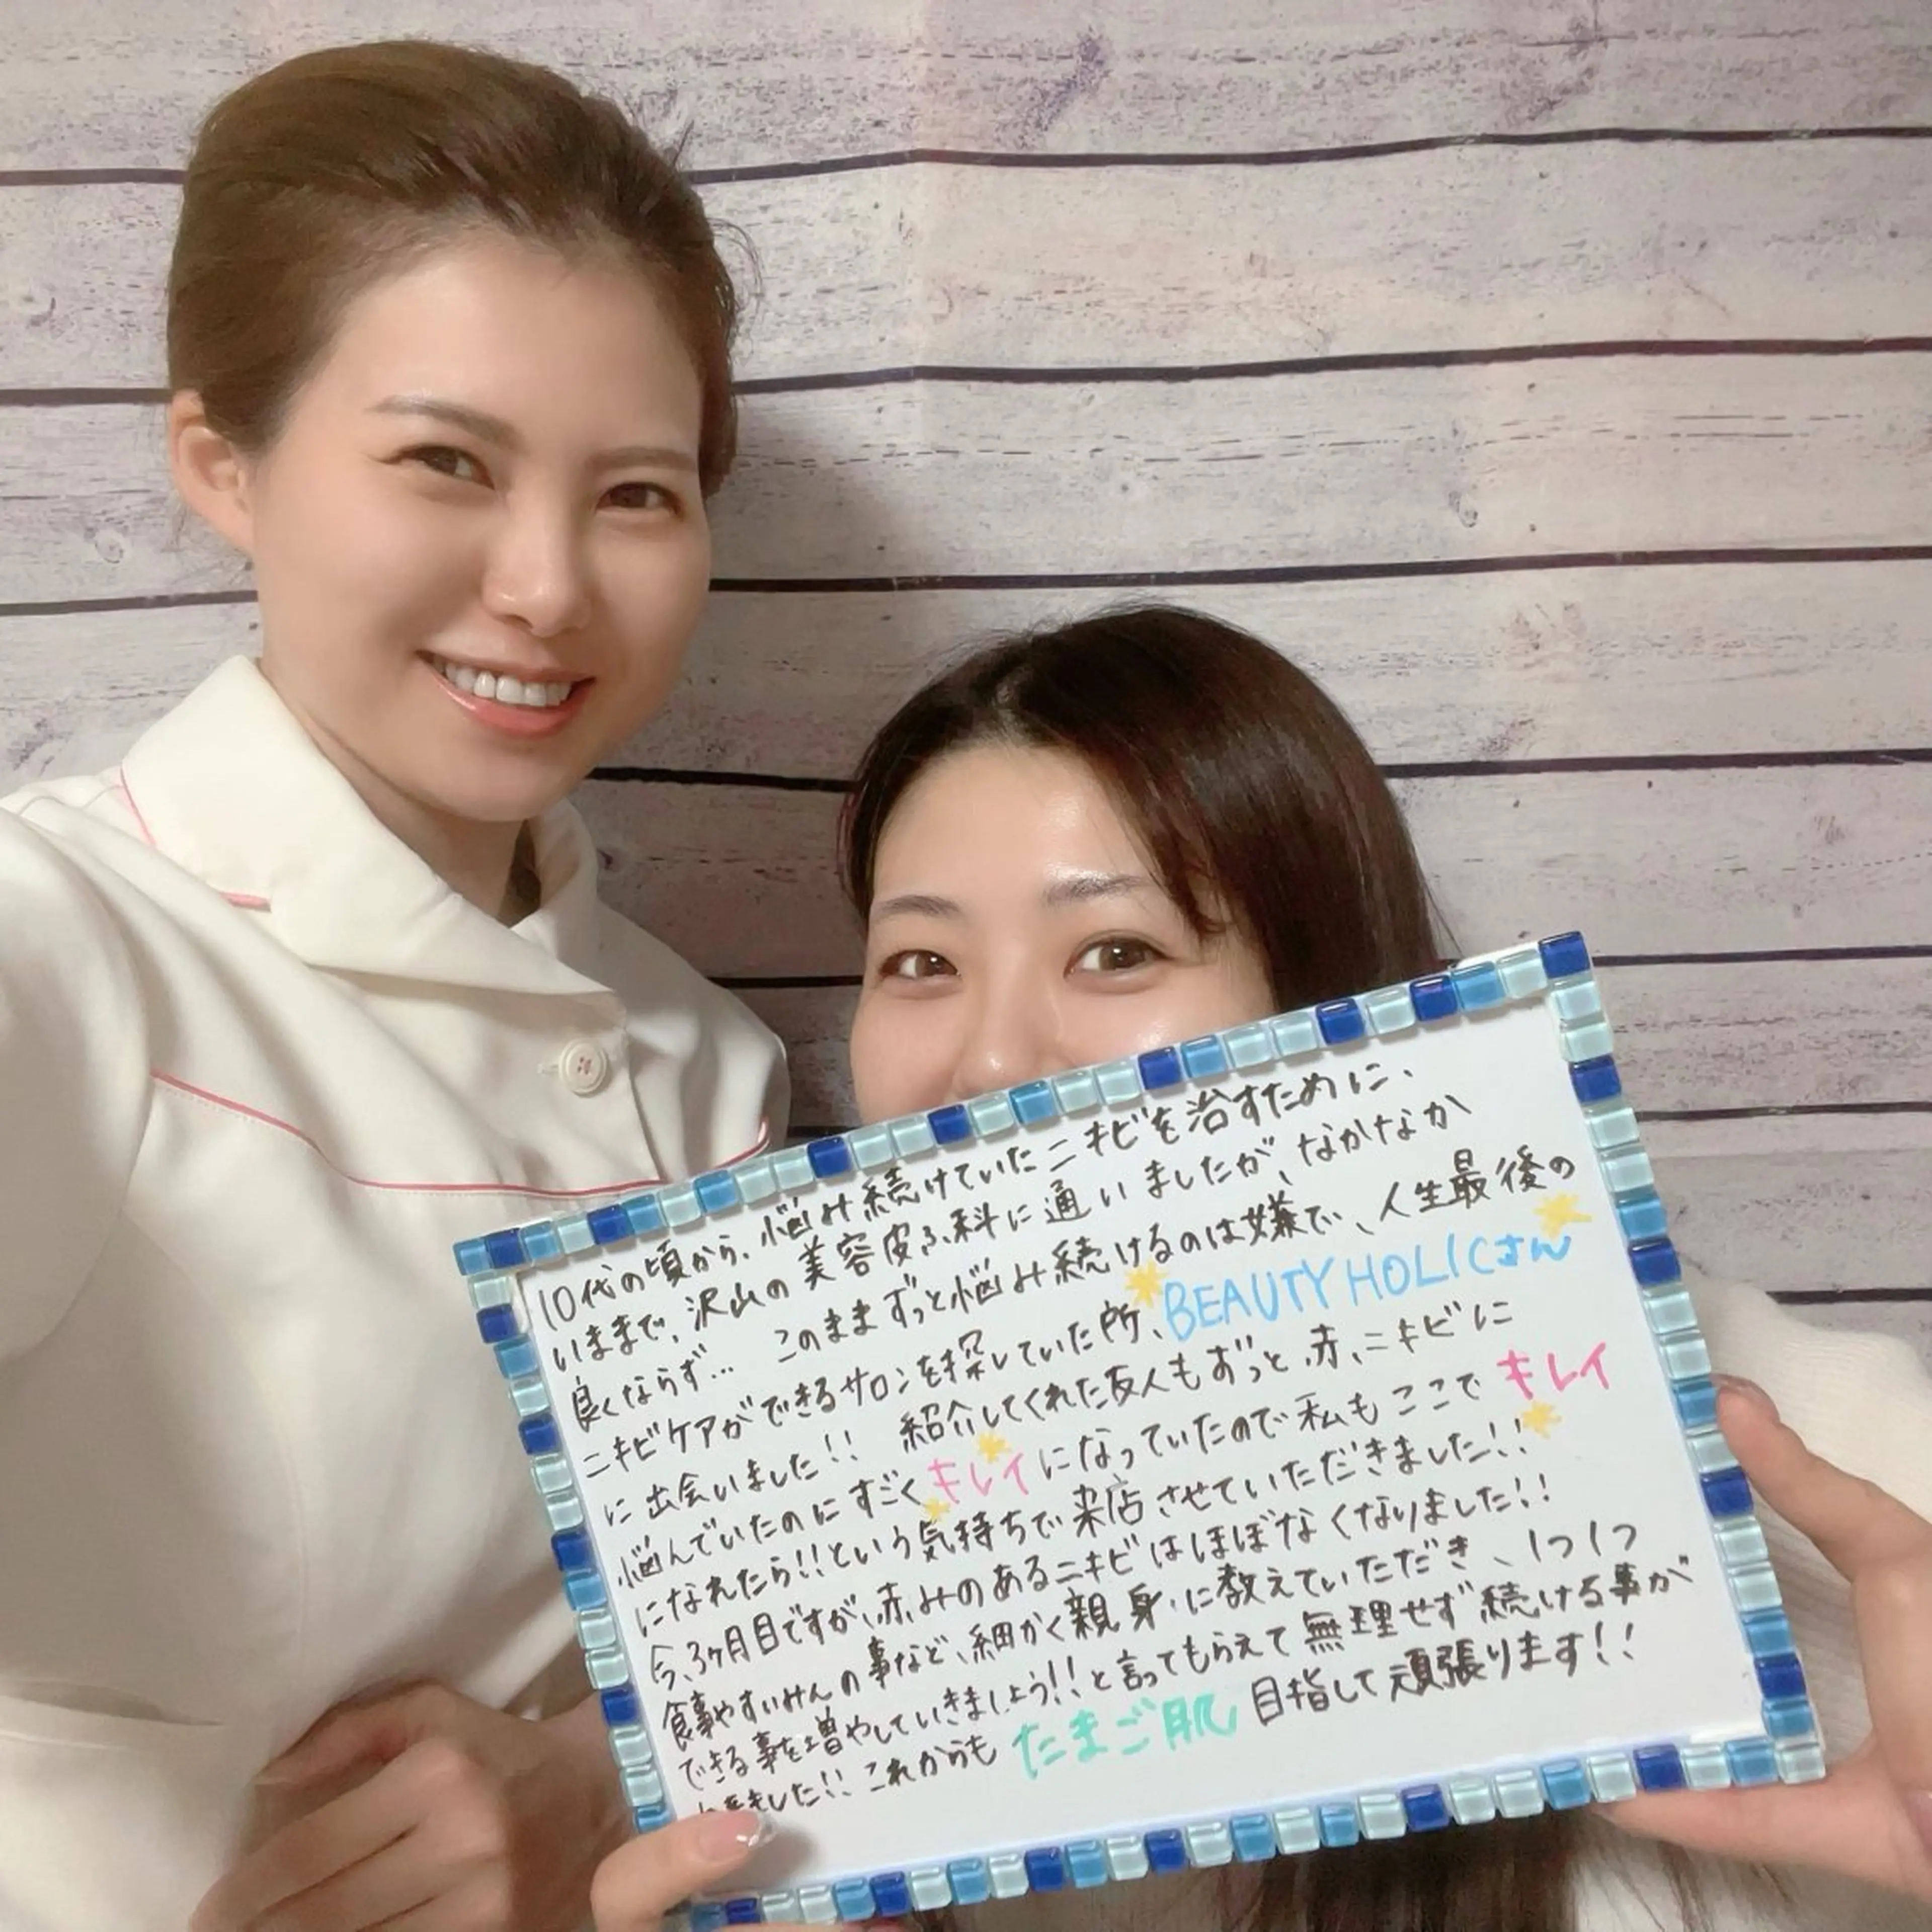 10代の頃から、悩み続けていたニキビを治すために、
いままで、沢山の美容皮ふ科に通いましたが、なかなか
良くならず… このままずっと悩み続けるのは嫌で、人生最後の
ニキビケアができるサロンを探していた所、BEAUTY HOLICさん
に出会いました!! 紹介してくれた友人もずっと赤ニキビに
悩んでいたのにすごくキレイになっていたので私もここでキレイ
になれたら!!という気持ちで来店させていただきました!!
今、3ヶ月目ですが、赤みのあるニキビはほぼなくなりました!!
食事やすいみんの事など、細かく親身に教えていただき、1つ1つ
できる事を増やしていきましょう!!と言ってもらえて無理せず続ける事が
ました!! これからもたまご肌目指して頑張ります!!